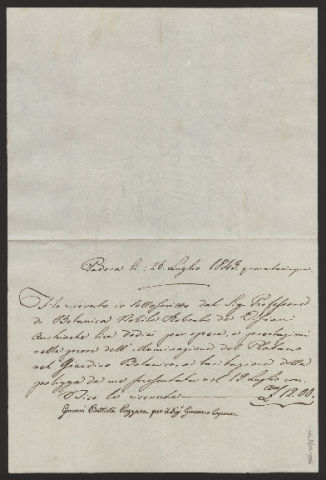 Padova li: 26. Luglio 1845. quarantacinque.
Ho ricevuto io sottoscritto dal Sig.r Professore
di Botanica Nobile Roberto de Visiani
Austriache Lire Dodici per opere, e prestazioni
nelle prove dell'illuminazione del Platano
nel Giardino Botanico, a tacitazione della
polizza da me presentata nel 19 Luglio corr.
Dico le ricevute £ 12.00.
Giovanni Battista Pezzana per il Sig.r Giacomo